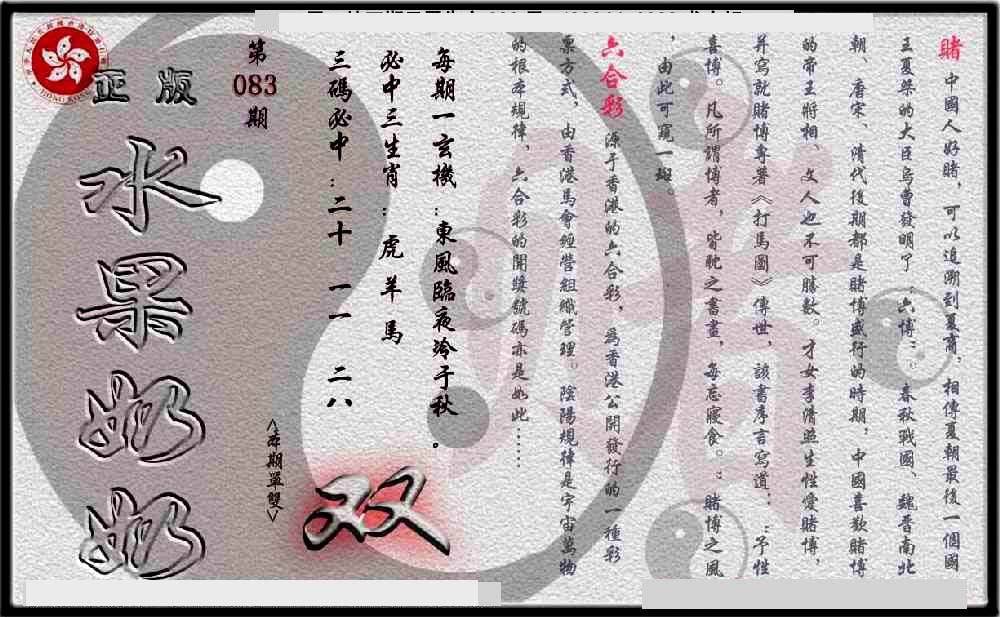 賭 中國人好賭，可以追溯到夏商．相傳夏朝最後一個國
王夏桀的大臣烏曾發明了：六博：．春秋戰國、魏晋南北
朝、唐宋、清代後期都是賭博盛行的時期，中國喜歡賭博
的帝王將相、文人也不可勝數。才女李清照生性愛賭博，
并寫就賭博專著《打馬圖》傳世，該書序言寫道：：予性
喜博。凡所謂博者，皆耽之晝畫，每忘寢食。：賭博之風
，由此可窺一斑。
六合彩 源于香港的六合彩，為香港公開發行的一種彩
票方式，由香港馬會經營組織管理。陰陽規律是宇宙萬物
的根本規律，六合彩的開獎號碼亦是如此……
每期一玄機：東風臨夜冷于秋。
必中三生肖：虎 羊 馬
三碼必中：二十 一一 二八
双
<本期單雙>
第083期
正版
水果奶奶